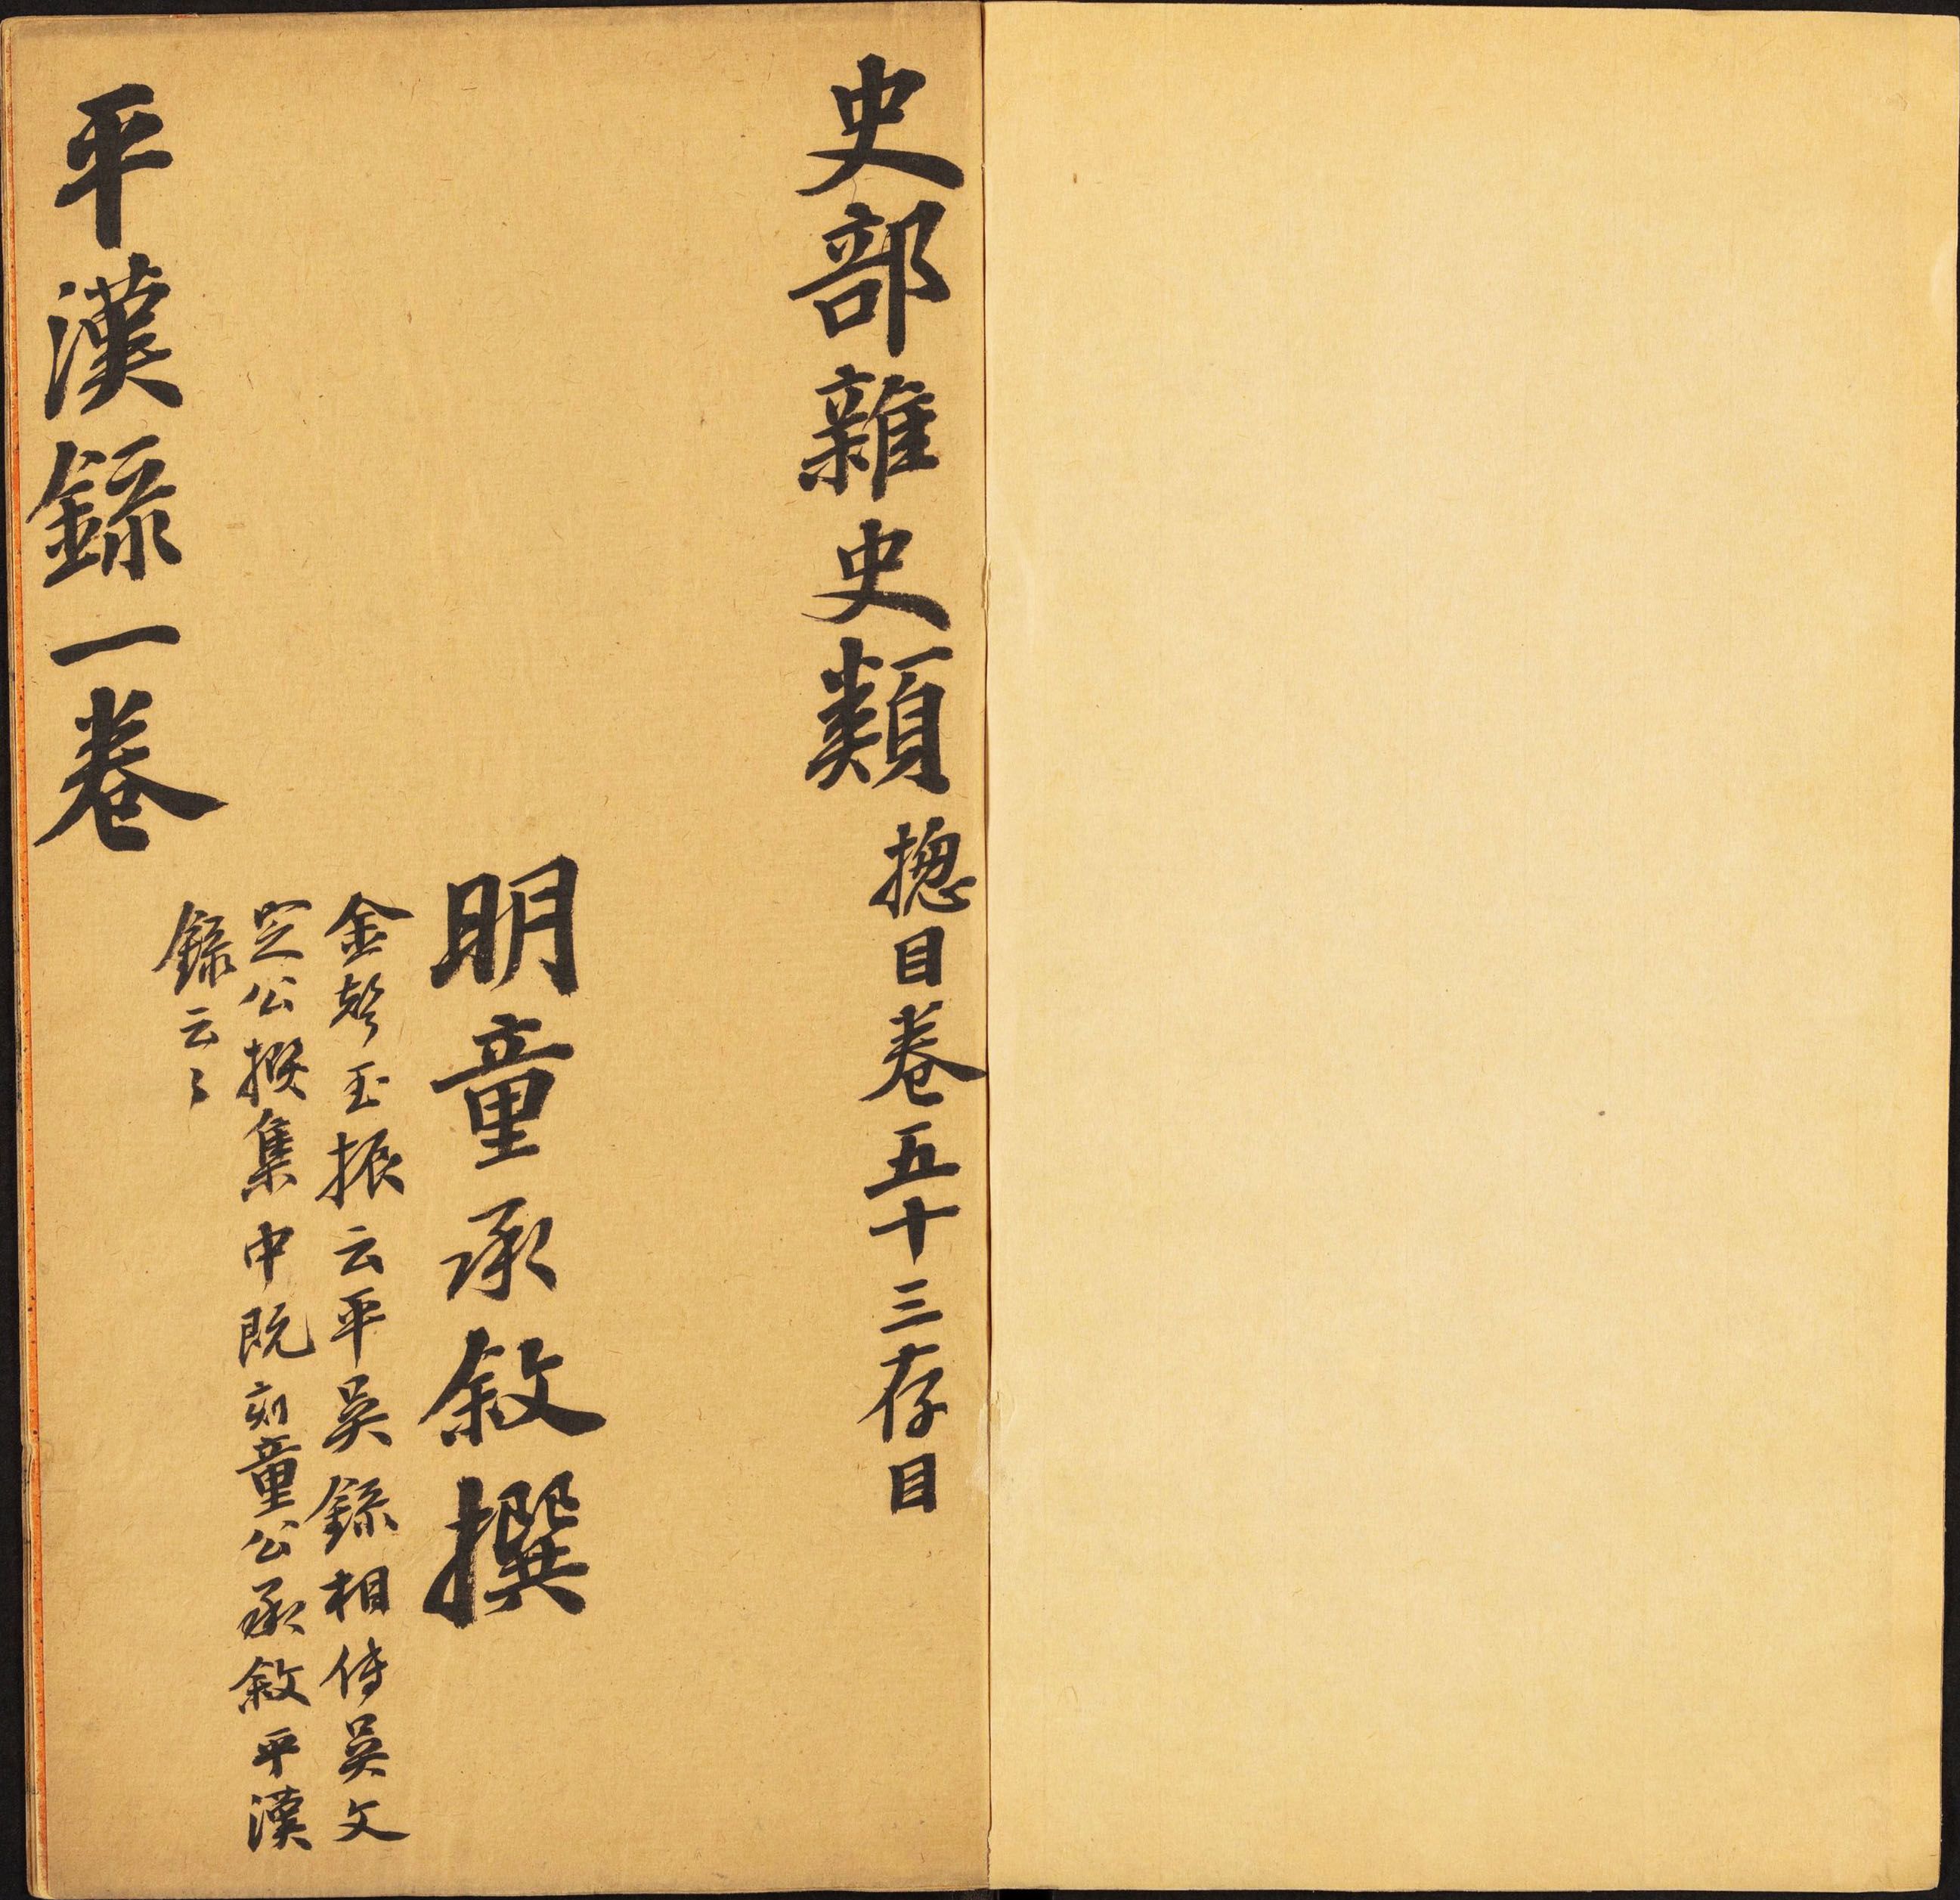 史部雜史類揔目卷五十三存目
明童承敘撰
金聲玉振云平吳錄相傳吳文
定公撰集中既刻童公承敘平漢
錄云〻
平漢錄一卷